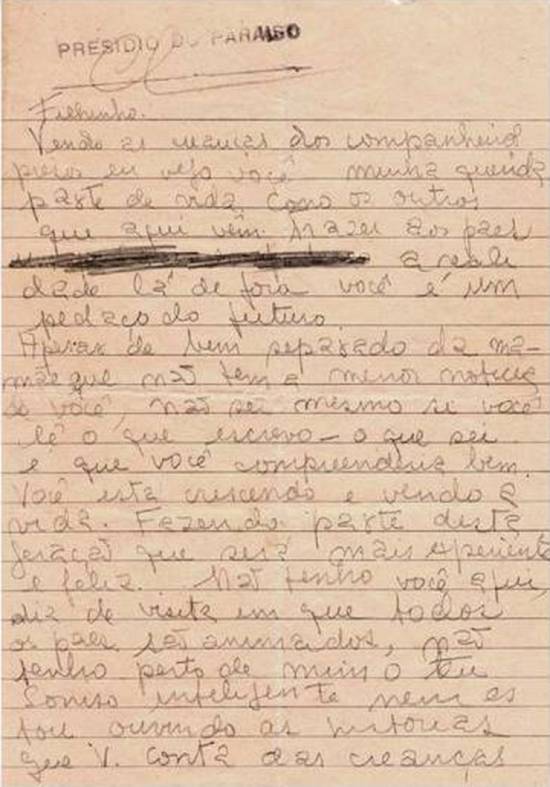 PRESIDIO DO PARAISO
Filhinho.
Vendo as creanças dos companheiros
presos eu vejo você minha querida
parte de vida. Como os outros
que aqui vêm trazer aos paes
a reali
dade lá de fora você é um
pedaço do futuro.
Apesar de bem separado da ma-
mãe que não tem a menor noticia
de você, não sei mesmo si você
lê o que escrevo — o que sei
é que você compreenderá bem.
Você está crescendo e vendo a
vida. Fazendo parte desta
geração que será mais experiente
e feliz... Não tenho você aqui,
dia de visita em que todos
os paes são animados, não
tenho perto de mim o teu
sorriso inteligente nem es
tou ouvindo as historias
que V. conta das creanças